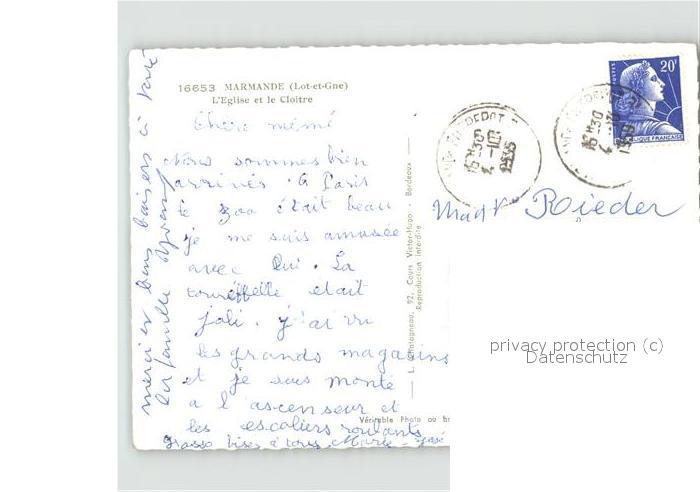 16653 MARMANDE (Lot-et-Gne)
L'Eglise et le Cloître
Chère mémé
Nous sommes bien
arrivés. A Paris
le zoo était beau
je me suis amusée
avec lui. La
toureiffelle etait
joli. j'ai vu
les grands magasins
et je suis monté
a l'ascenseur et
les escaliers roulants
grosso bises à tous Marie-José
merci et bons baisers à toute
la famille
L. Chatagneau, 92, Cours Victor-Hugo - Bordeaux
Reproduction interdite
Véritable Photo au br
POSTES
20F
REPUBLIQUE FRANÇAISE
16H30
16H30
Rieder
privacy protection (c)
Datenschutz